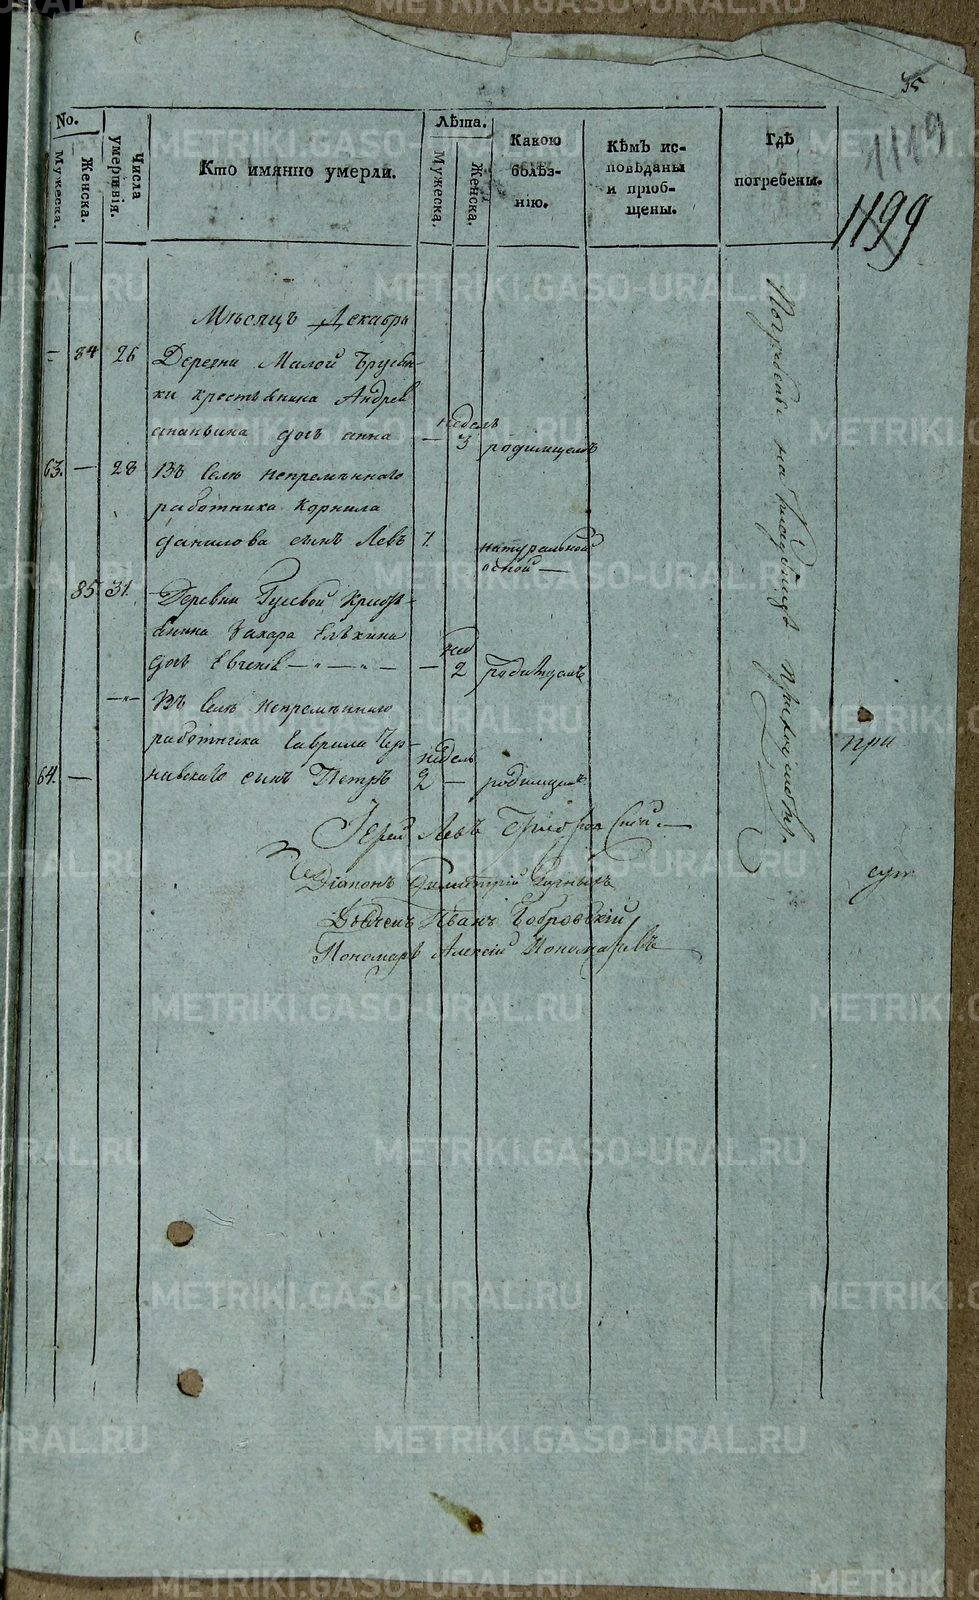 35
1119
1199
No.
Мужеска.
Женска.
Числа умертвія.
Кто имянно умерли.
Лѣта.
Мужеска.
Женска.
Какою болѣз-
нію.
Кѣмъ ис-
повѣданы
и приоб-
щены.
Гдѣ
погребены.
Мѣсяцъ Декабрь
— 84 26 Деревни Малой Брусян-
ки крестьянина Андрея
ананьина дочь анна — недель 3 родимцемъ
63. — 28 Въ селѣ непремѣннаго
работника Корнила
данилова сынъ Левъ 1. натуральной
оспой —
85 31. Деревни Гусевой Кресть-
янина Захара Елькина
дочь Евгенія — " — " — — нед 2 родимцемъ
—"— Въ селѣ непремѣннаго
работника Гаврила Чер-
64. — навскаго сынъ Петръ недель 2 — родимцемъ
Погребены на кладбище приходскомъ.
Іерей Левъ
Діаконъ Димитрій
Дьячекъ Иванъ Бобровскій
Пономарь Алексій Пономаревъ
при
METRIKI.GASO-URAL.RU